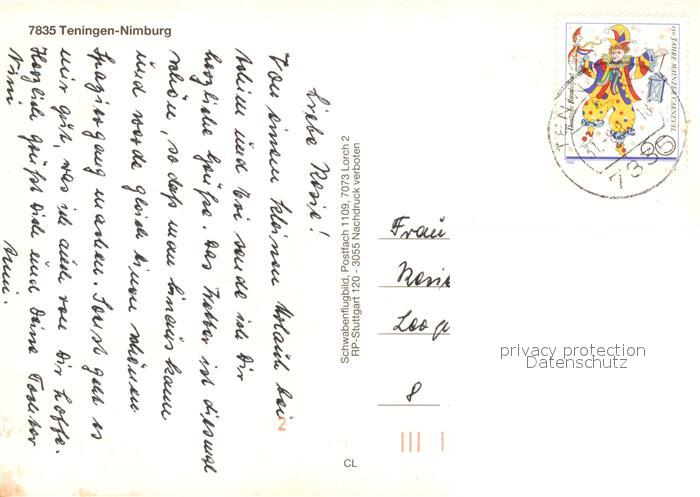 7835 Teningen-Nimburg
Liebe Rosie!
Von einem kleinen Urlaub bei
und bei sende ich Dir
herzliche Grüße. Das Wetter ist diesmal
schön, so daß man hinaus kann
und werde gleich einen schönen
Spaziergang machen. Sonst geht es
mir gut, was ich auch von Dir hoffe.
Herzlich grüßt Dich und Deine Tochter
Schwabenflugbild, Postfach 1109, 7073 Lorch 2
RP-Stuttgart 120 - 3055 Nachdruck verboten
CL
2
150 JAHRE MAINZER CARNEVAL
Deutsche Bundespost
60
TENIN
31.
7835
Frau
Rosie
8
privacy protection
Datenschutz